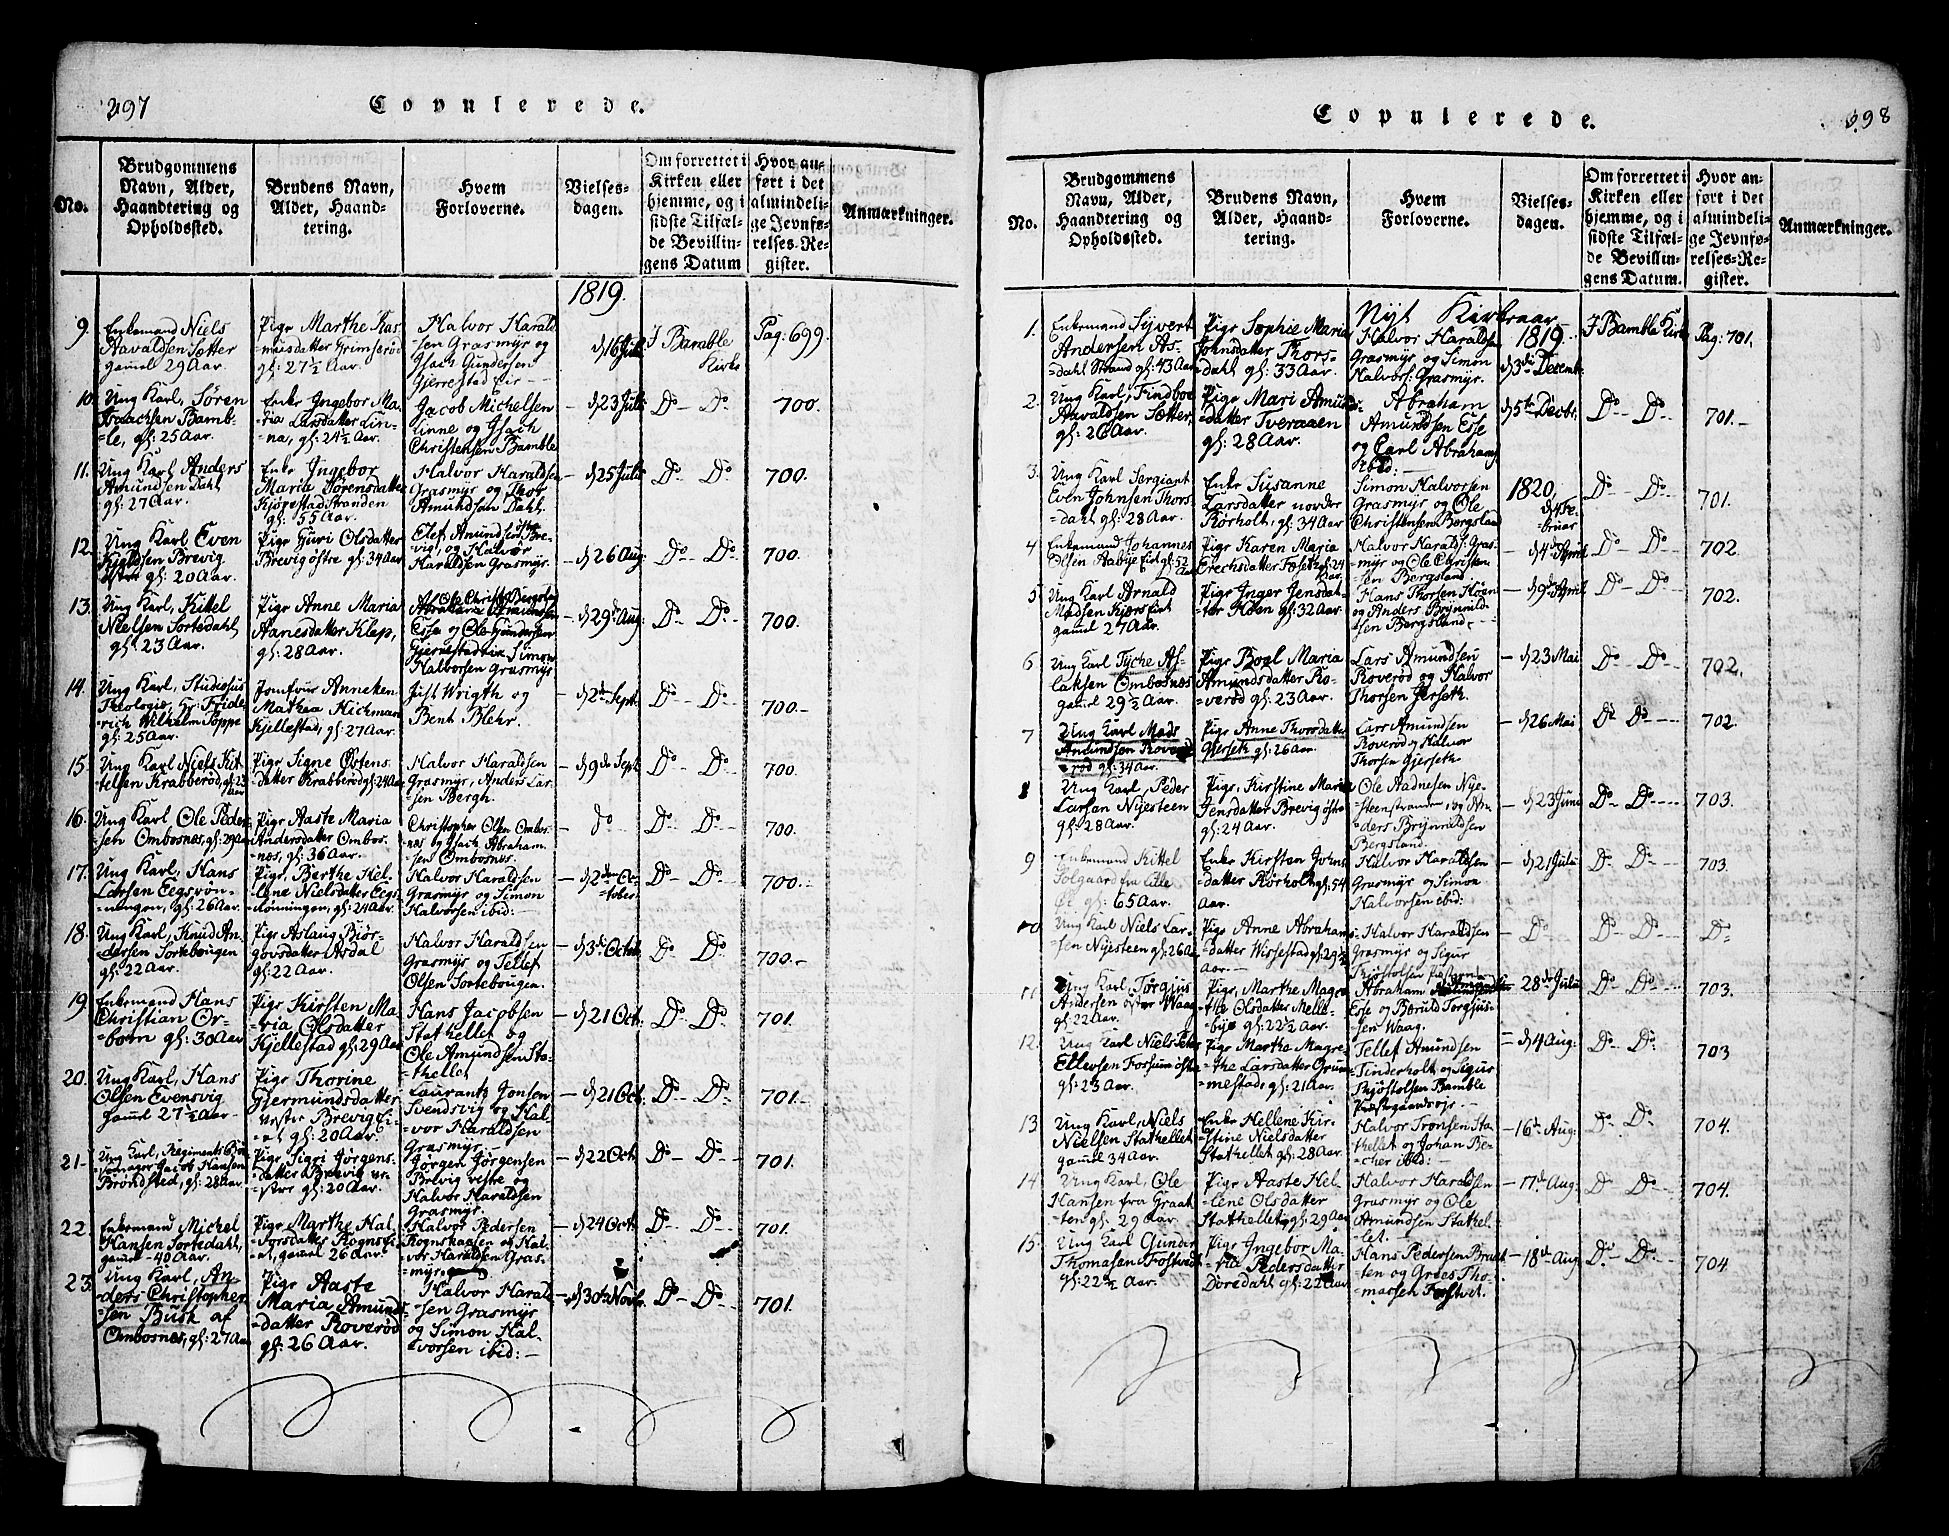 297
Copulerede.
No.
Brudgommens
Navn, Alder,
Haandtering og
Opholdssted.
Brudens Navn,
Alder, Haand-
tering.
Hvem
Forloverne.
Vielses-
dagen.
Om forrettet i
Kirken eller
hjemme, og i
sidste Tilfæl-
de Bevillin-
gens Datum
Hvor an-
ført i det
almindeli-
ge Jevnfø-
relses-Re-
gister.
Anmærkninger.
1819.
9.
Enkemand Niels
Aavaldsen Sotter
gamel 29 Aar.
Pige Marthe Ras-
musdatter Grimserød
gl: 27½ Aar.
Halvor Harald-
sen Grasmyr og
Isach Gundersen
Gjerrestad Eie
d 16 Juli
I Bamble
Kirke
Pag: 699.
10.
Ung Karl, Søren
Isaachsen Bamb-
le, gl: 25 Aar.
Enke Ingebor Ma-
ria Larsdatter Lin-
na, gl: 24½ Aar.
Jacob Michelsen
Linne og Isach
Christensen Bamble
d 23 Juli
Do Do
700.
11.
Ung Karl Anders
Amundsen Dahl
gl: 27 Aar.
Enke Ingebor
Maria Sørensdatter
Kjørestad Stranden
gl: 55 Aar.
Halvor Haraldsen
Grasmyr og Thor
Amundsen Dahl.
d 25 Juli
Do Do
700.
12.
Ung Karl Even
Kjeldsen Brevig
østre gl: 20 Aar.
Pige Guri Olsdatter
Brevig østre gl: 34 Aar
Elef Amundsen Bre-
vig, og Halvor
Haraldsen Grasmyr.
d 26 Aug.
Do Do
700.
13.
Ung Karl, Kittel
Nielsen Sortedahl
gl: 23 Aar.
Pige Anne Maria
Aanesdatter Klep,
gl: 28 Aar.
Esse og Ole Gundersen
Gjerrestad Simon
Halvorsen Grasmyr
d 29 Aug.
Do Do
700.
14.
Ung Karl, Studiosus
Theologiæ, Hr Fride-
rich Wilhelm Poppe
gl: 25 Aar.
Jomfrue Anneken
Mathea Hichman
Kjellestad, gl: 27 Aar.
Just Wrigth og
Bent Blehr.
d 2 Sept.
Do Do
700.
15.
Ung Karl Niels Kit-
telsen Krabberød, gl: 23
Aar
Pige Signe Østens
datter Krabberød gl: 24 Aar
Halvor Haraldsen
Grasmyr, Anders Lar-
sen Bergh.
d 9 Sept.
Do Do
700.
16.
Ung Karl Ole Peder-
sen Ombosnes, gl: 29 Aar
Pige Aaste Maria
Andersdatter Ombos-
nes, gl: 36 Aar.
Christopher Olsen Ombos-
nes og Isach Abraham-
sen Ombosnes.
do
Do Do
700.
17.
Ung Karl, Hans
Larsen Eegsrøn-
ningen, gl: 26 Aar.
Pige, Berthe Hel-
lene Nielsdatter Eegs-
rønningen, gl: 24 Aar.
Halvor Haraldsen
Grasmyr og Simon
Halvorsen ibid:
d 2 Oc-
tober
Do Do
700.
18.
Ung Karl, Knud An-
dersen Sortebougen
gl: 22 Aar.
Pige Aslaug Bjør-
govsdatter Asdal
gl: 22 Aar.
Halvor Haraldsen
Grasmyr og Tellef
Olsen Sortebougen.
d 3 Octob.
Do Do
700.
19.
Enkemand Hans
Christian Or-
born gl: 30 Aar
Pige Kirsten Ma-
ria Olsdatter
Kjellestad gl: 29 Aar
Hans Jacobsen
Stathellet og
Ole Amundsen Sta-
thellet
d 21 Oct.
Do Do
701.
20.
Ung Karl, Hans
Olsen Evensvig
gamel 27½ Aar
Pige Thorine
Gjermundsdatter
vestre Brevig Ei-
et gl: 20 Aar.
Laurantz Jonsen
Svendsvig og Hal-
vor Haraldsen
Grasmyr.
d 21 Oct.
Do Do
701.
21.
Ung Karl, Regiments
Jacob Hansen
Brøndsted, gl: 28 Aar.
Pige Sigri Jørgens-
datter Brevig ve-
stre gl: 20 Aar.
Jørgen Jørgensen
Brevig vestre og
Halvor Haraldsen
Grasmyr.
d 22 Oct.
Do Do
701.
22.
Enkemand Michel
Hansen Sortedahl,
gamel 40 Aar.
Pige Marthe Hal-
vorsdatter Rognsei-
et, gamel 26 Aar.
Halvor Pedersen
Rognskaasen og Hal-
vor Haraldsen Gras-
myr.
d 24 Oct.
Do Do
701.
23.
Ung Karl, An-
ders Christopher-
sen Busk af
Ombosnes, gl: 27 Aar
Pige Aaste
Maria Amunds-
datter Roverød
gl: 26 Aar.
Halvor Harald-
sen Grasmyr
og Simon Hal-
vorsen ibid:
d 30 Novb.
Do Do
701.
298
Copulerede.
No.
Brudgommens
Navn, Alder,
Haandtering og
Opholdssted.
Brudens Navn,
Alder, Haand-
tering.
Hvem
Forloverne.
Vielses-
dagen.
Om forrettet i
Kirken eller
hjemme, og i
sidste Tilfæl-
de Bevillin-
gens Datum.
Hvor an-
ført i det
almindeli-
ge Jevnfø-
relses-Re-
gister.
Anmærkninger.
Nyt Kirkeaar
1819.
1.
Enkemand Syvert
Andersen As-
dahl Strand gl: 43 Aar
Pige Sophie Maria
Johnsdatter Thors-
dahl gl: 33 Aar.
Halvor Haraldsen
Grasmyr og Simon
Halvors: Grasmyr.
d 3 Decemb.
I Bamble Kirk
Pag: 701.
2.
Ung Karl, Findboe
Aavaldsen Sotter,
gl: 26 Aar.
Pige Mari Amunds-
datter Tveraaen
gl: 28 Aar.
Abraham
Amundsen Esse
og Carl Abrahams
ibid:
d 5 Decbr.
Do Do
701.
3.
Ung Karl Sergiant
Even Johnsen Thors-
dahl gl: 28 Aar.
Enke Susanne
Larsdatter nordre
Rørholt, gl: 34 Aar
Simon Halvorsen
Grasmyr og Ole
Christensen Bergsland
1820.
d 4 Fe-
bruar
Do Do
701.
4
Enkemand Johannes
Olsen Aabye Eie gl: 52
Aar
Pige Karen Maria
Erechsdatter Foseth gl: 24
Aar.
Halvor Haralds: Gras-
myr og Ole Christen-
sen Bergsland
d 4 April
Do Do
702.
5.
Ung Karl Arnald
Madsen Kjærs Eiet
gamel 27 Aar.
Pige Inger Jensdat-
ter Hoen gl: 32 Aar
Hans Thorsen Hoen
og Anders Brynnild-
sen Bergsland.
d 9 April
Do Do
702.
6
Ung Karl Tyche As-
laksen Ombosnes
gamel 29½ Aar.
Pige Boel Maria
Amundsdatter Ro-
verød gl: 23 Aar.
Lars Amundsen
Roverød og Halvor
Thorsen Gjerseth.
d 23 Mai
Do Do
702.
7
Ung Karl Mads
Amundsen Rove-
rød gl: 34 Aar.
Pige Anne Thorsdatter
Gjerseth gl: 26 Aar.
Lars Amundsen
Roverød og Halvor
Thorsen Gjerseth
d 26 Mai
Do Do
702.
8
Ung Karl, Peder
Larsen Nyesteen
gl: 28 Aar.
Pige, Kirstine Maria
Jensdatter Brevig østre
gl: 24 Aar.
Ole Aadnesen Nye-
steenstranden, og An-
ders Brynnildsen
Bergsland.
d 23 Juni
Do Do
703.
9
Enkemand Kittel
Solgaard fra Lille
Øe gl: 65 Aar.
Enke Kirsten Johns
datter Rørholt gl: 54
Aar.
Halvor Haraldsen
Grasmyr og Simon
Halvorsen ibid:
d 21 Juli
Do Do
703.
10.
Ung Karl Niels Lar-
sen Nyesteen gl: 26 Aar
Pige Anne Abrahams-
datter Wissestad gl: 29½
Aar.
Halvor Haraldsen
Grasmyr og Sigur
Do
Do Do
Do
11
Ung Karl, Torgius
Andersen østre Waag
gl: 22 Aar.
Pige, Marthe Magre-
the Olsdatter Melle-
bye gl: 22½ Aar.
Abraham
Esse og Børuld Torgjus-
sen Waag.
28 Julii
Do Do
703.
12.
Ung Karl Niels
Ellevsen Forsum østre
gl: 23 Aar.
Pige Marthe Magre-
the Larsdatter Grum-
mestad, gl: 21 Aar.
Tellef Amundsen
Tinderholt og Sigur
Thjøstolsen Bamble
d 4 Aug.
Do Do
703
13
Ung Karl, Niels
Nielsen Stathellet
gamel 34 Aar.
Enke Hellene Kir-
stine Nielsdatter
Stathellet gl: 28 Aar.
Halvor Tronsen Sta-
thellet og Johan Be-
cher ibid:
16 Aug.
Do Do
704.
14
Ung Karl, Ole
Hansen fra Graat-
ten gl: 29 Aar.
Pige Aaste Hel-
lene Olsdatter
Stathellet gl: 29 Aar
Halvor Haraldsen
Grasmyr og Ole
Amundsen Stathel-
let.
17 Aug.
Do Do
704.
15.
Ung Karl Gunder
Thomasen Fostvedt
gl: 22½ Aar.
Pige Ingebor Ma-
ria Pedersdatter
Doredahl gl: 22 Aar
Hans Pedersen
og Groes Tho-
massen Fostvet.
18 Aug
Do Do
704